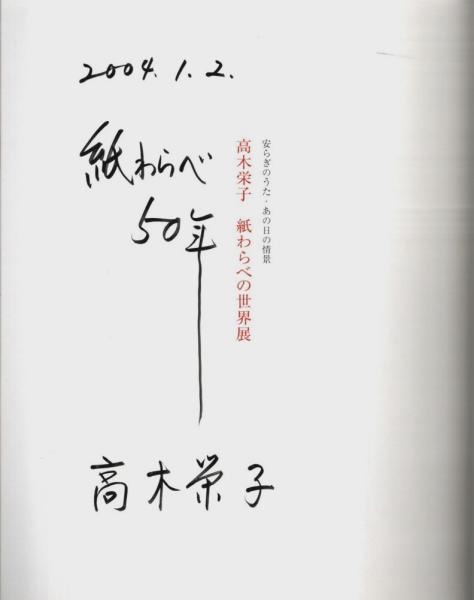 2004.1.2.
紙わらべ
50年
安らぎのうた・あの日の情景
高木栄子 紙わらべの世界展
高木栄子